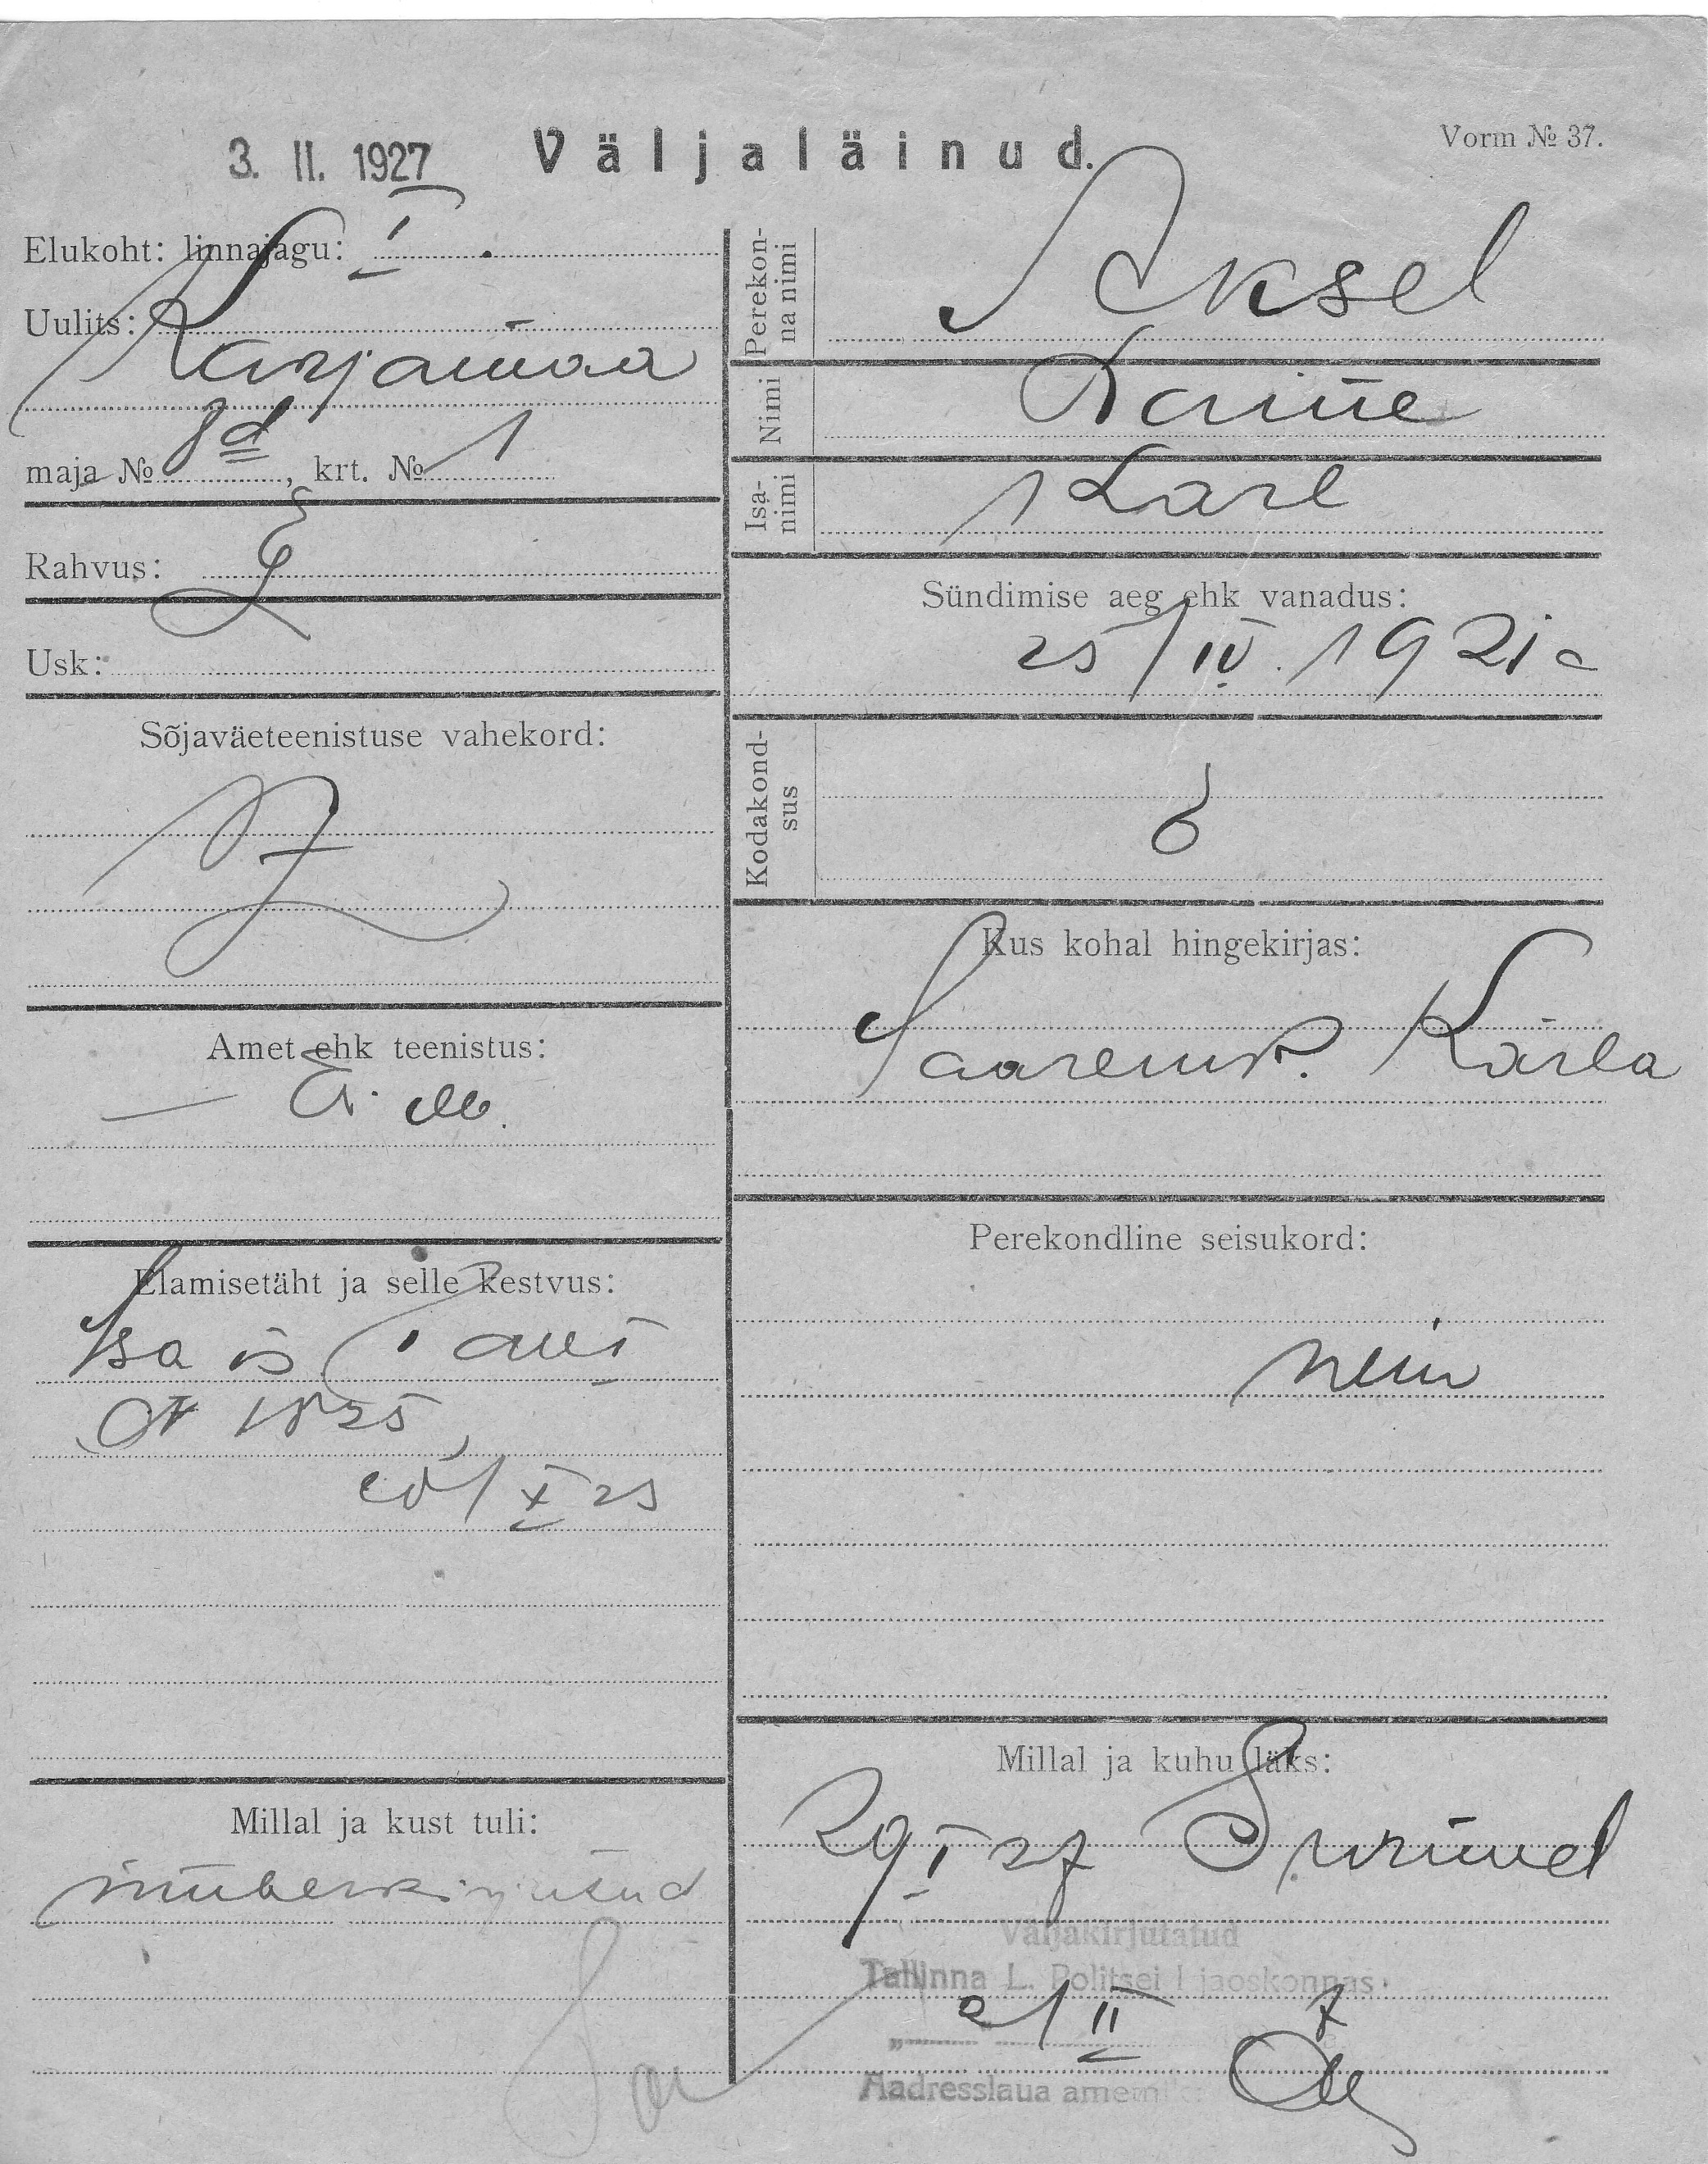 3. II. 1927 Väljaläinud.
Vorm № 37.
Elukoht: linnajagu: I
Uulits:
Karjamaa
maja № 8d, krt. № 1
Rahvus: E
Usk:
Sõjaväeteenistuse vahekord:
Amet ehk teenistus:
Elamisetäht ja selle kestvus:
Isa is
1825
X 25
Millal ja kust tuli:
ümberkirjutud
Perekonna nimi
Aksel
Nimi
Isanimi
Karl
Sündimise aeg ehk vanadus:
25/IV. 1921 a
Kodakondsus
Kus kohal hingekirjas:
Saarema. Kärla
Perekondline seisukord:
Millal ja kuhu läks:
29 I 27 Surnud
Väljakirjutatud
Tallinna L. Politsei I jaoskonnas.
2/II 7
Aadresslaua